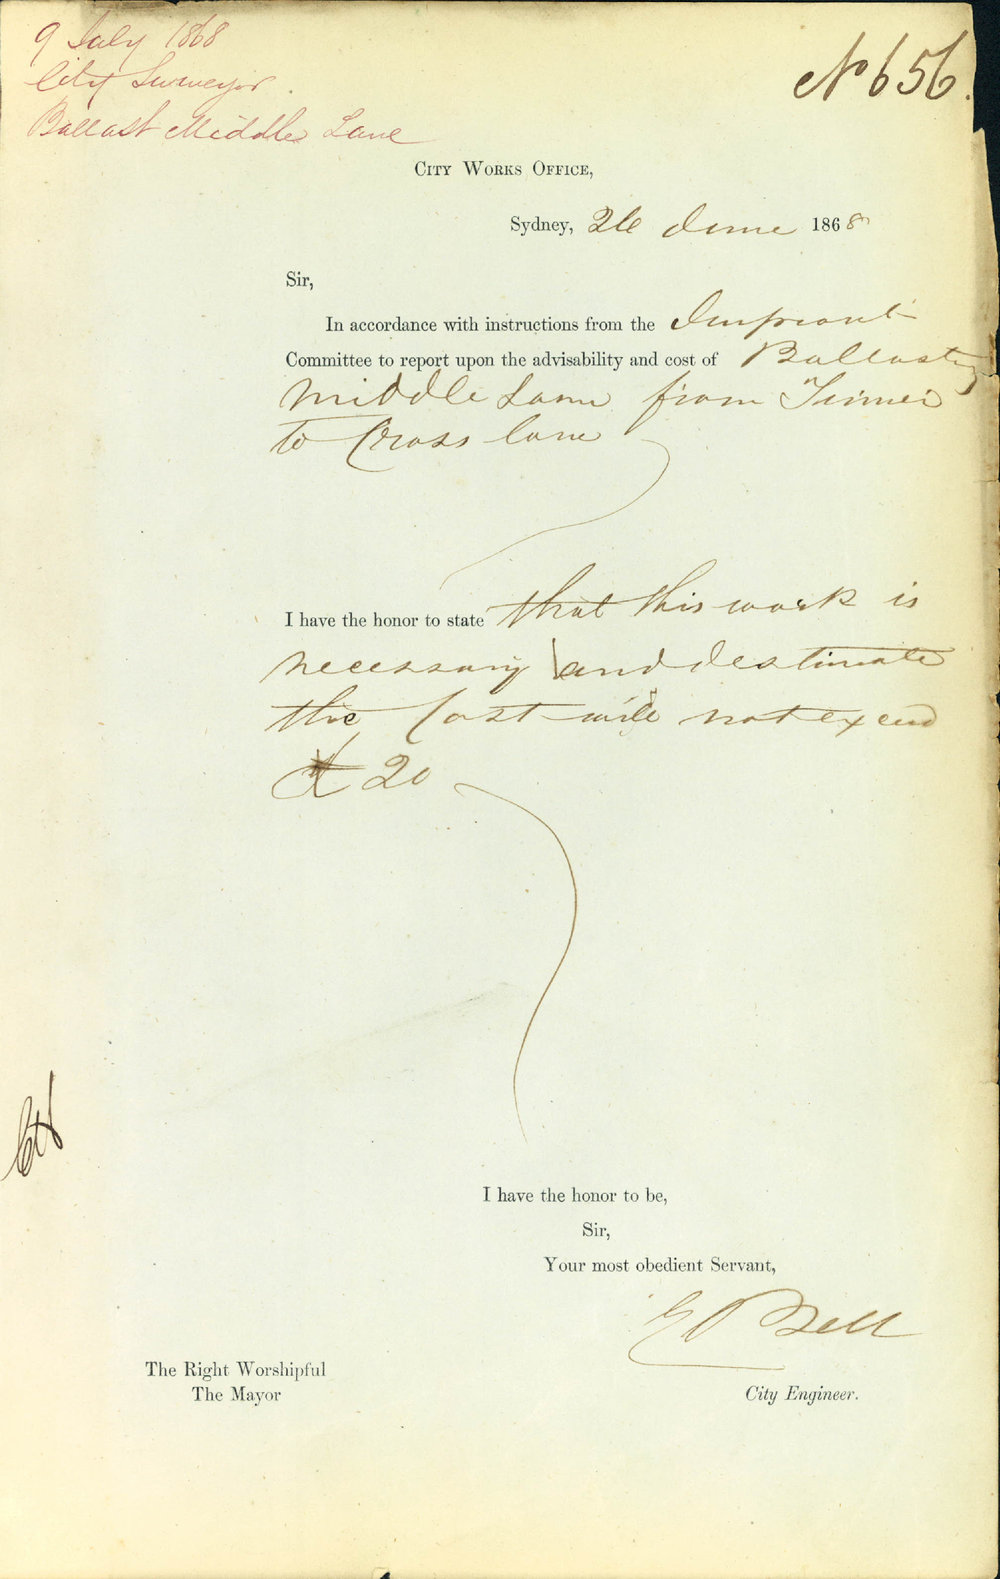 9 July 1868
City Surveyor.
Ballast Middle Lane
No 656.
City Works Office,
Sydney, 26 June 1868
Sir,
In accordance with instructions from the Improvmt
Committee to report upon the advisability and cost of Ballasting
Middle Lane from
to Cross lane
I have the honor to state that this work is
necessary and I estimate
the Cost will not exceed
£ 20
I have the honor to be,
Sir,
Your most obedient Servant,
Bell
The Right Worshipful
The Mayor
City Engineer.